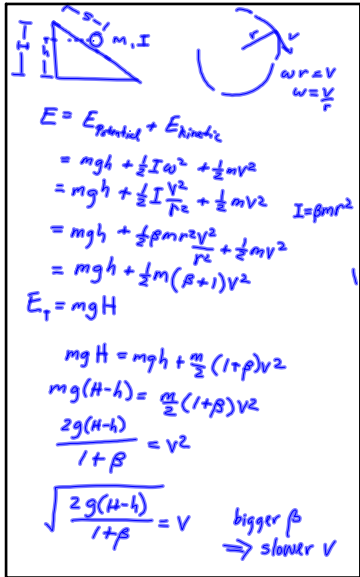 s
H
h
m, I
r
v
ωr = v
ω = v/r
E = E_potential + E_kinetic
= mgh + ½Iω² + ½mv²
= mgh + ½I v²/r² + ½mv²
I = βmr²
= mgh + ½βmr²v²/r² + ½mv²
= mgh + ½m(β+1)v²
E_T = mgH
mgH = mgh + m/2 (1+β)v²
mg(H-h) = m/2 (1+β)v²
2g(H-h)/(1+β) = v²
√(2g(H-h)/(1+β)) = v
bigger β
⇒ slower v